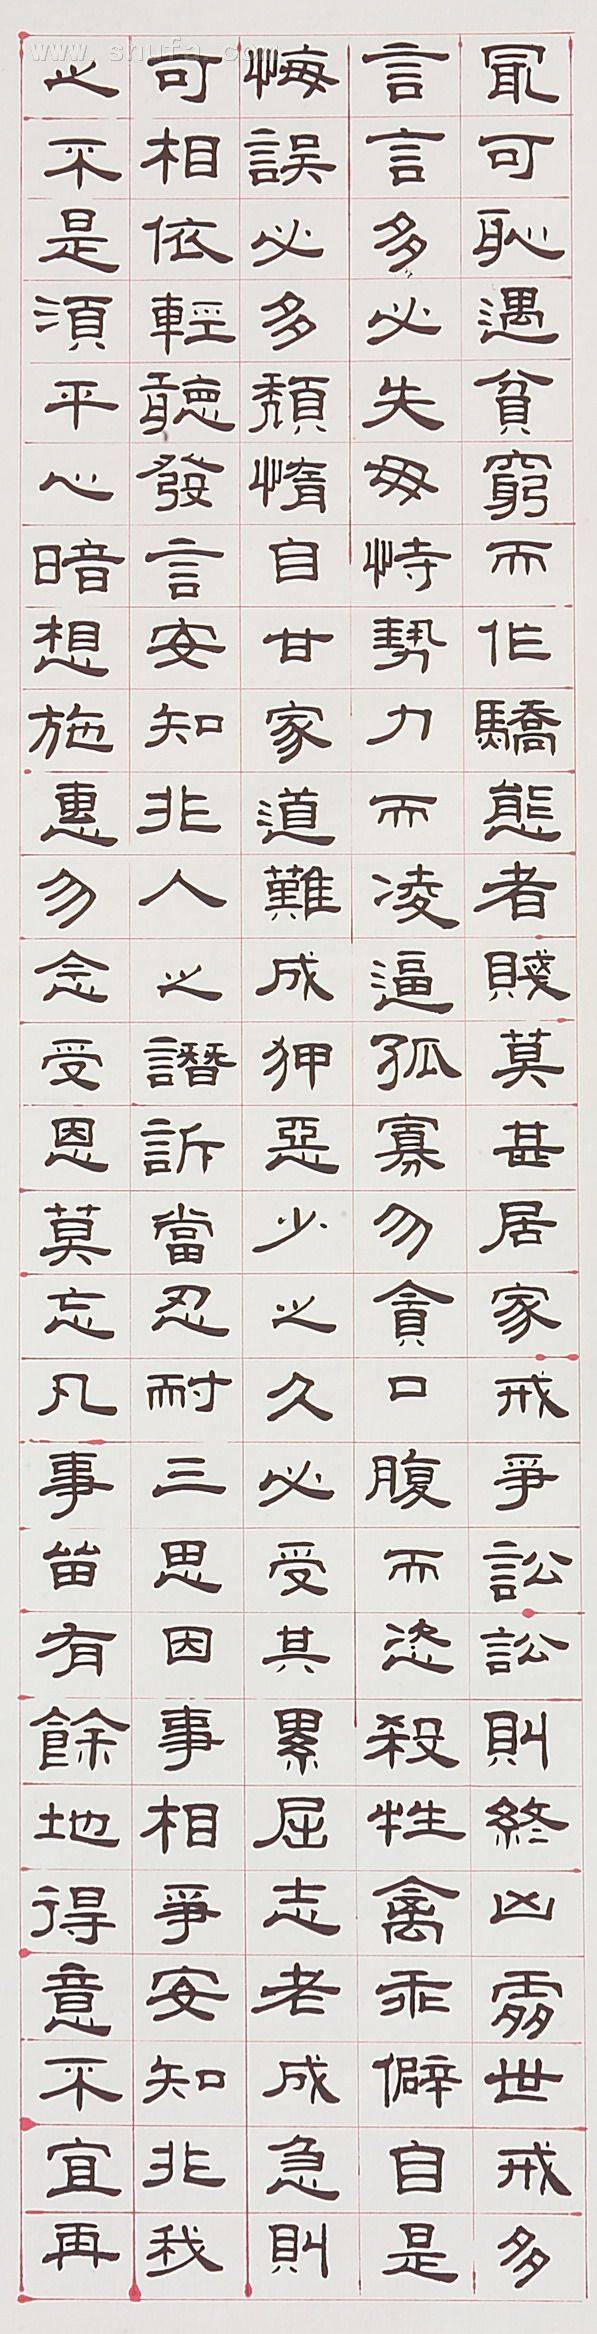 冣可恥遇貧窮而作驕態者賤莫甚居家戒爭訟訟則終凶處世戒多
言言多必失毋恃勢力而凌逼孤寡勿貪口腹而恣殺牲禽乖僻自是
悔誤必多頹惰自甘家道難成狎惡少之久必受其累屈志老成急則
可相依輕聽發言安知非人之譖訴當忍耐三思因事相爭安知非我
之不是須平心暗想施惠勿念受恩莫忘凡事留有餘地得意不宜再
www.shufa.com